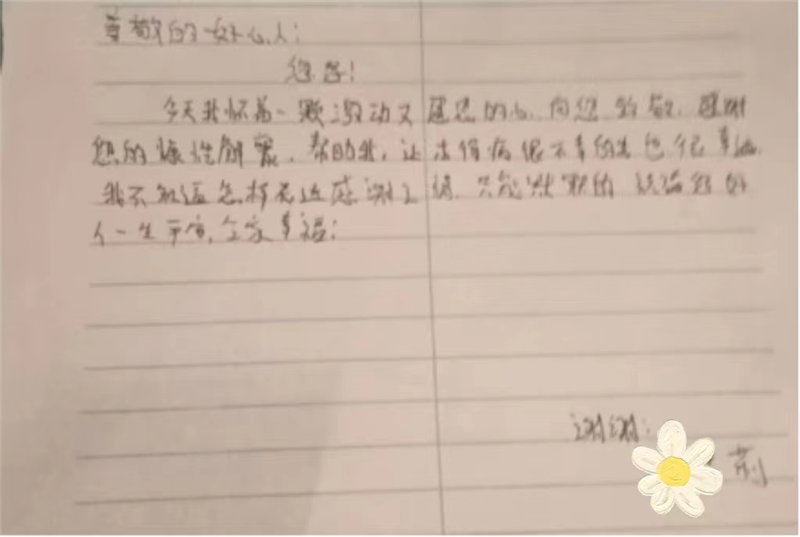 尊敬的好心人：
您好！
今天我怀着一颗激动又感恩的心，向您致敬，感谢
您的慷慨解囊，帮助我，让 得病很不幸的 也很幸运，
我不知道怎样 感谢 ，只能默默的祝福您好
人一生平安，全家幸福；
谢谢：
莉